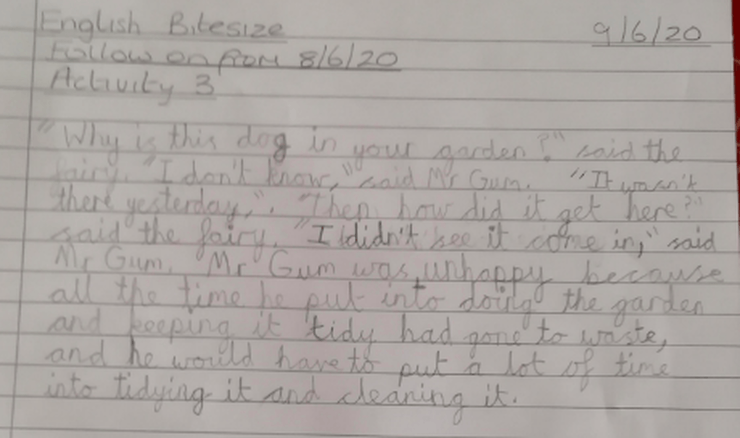 English Bitesize 9/6/20
Follow on from 8/6/20
Activity 3
"Why is this dog in your garden?" said the
fairy. "I don't know," said Mr Gum. "It wasn't
there yesterday,". "Then how did it get here?"
said the fairy. "I didn't see it come in," said
Mr Gum. Mr Gum was unhappy because
all the time he put into doing the garden
and keeping it tidy had gone to waste,
and he would have to put a lot of time
into tidying it and cleaning it.